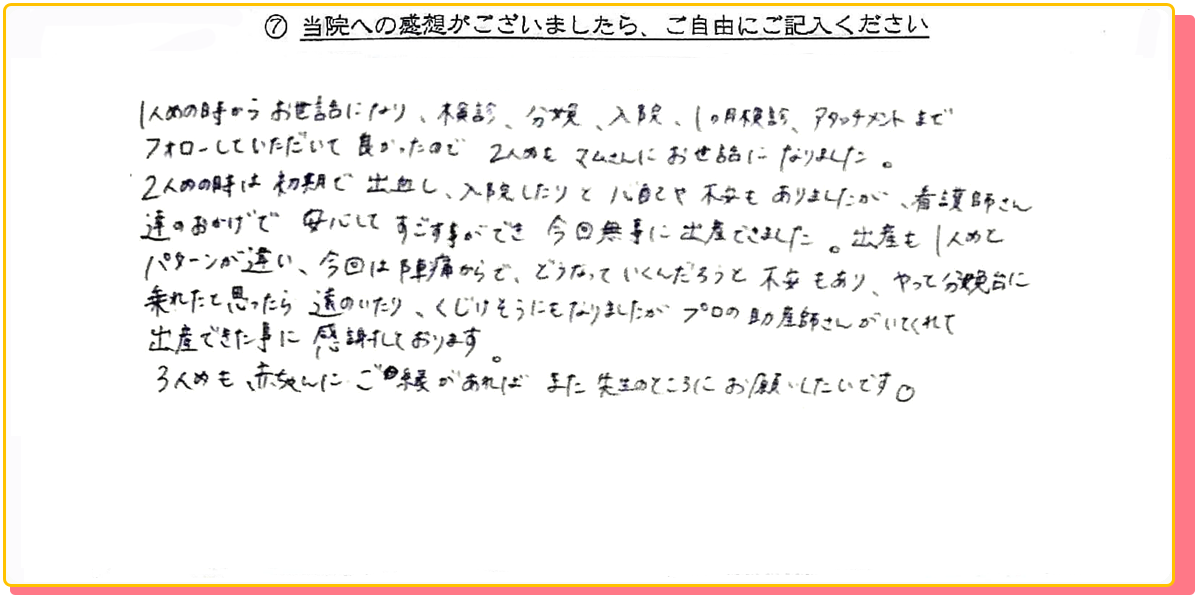 ⑦ 当院への感想がございましたら、ご自由にご記入ください
1人めの時からお世話になり、検診、分娩、入院、1ヶ月検診、アタッチメントまで
フォローしていただいて良かったので 2人めも マムさんにお世話になりました。
2人めの時は初期で出血し、入院したりと心配や不安もありましたが、看護師さん
達のおかげで 安心して すごす事ができ 今回無事に出産できました。出産も1人めと
パターンが違い、今回は陣痛からで、どうなっていくんだろうと不安もあり、やっと分娩台に
乗れたと思ったら遠のいたり、くじけそうにもなりましたが プロの助産師さんがいてくれて
出産できた事に感謝しております。
3人めも、赤ちゃんにご縁があれば また先生のところにお願いしたいです。